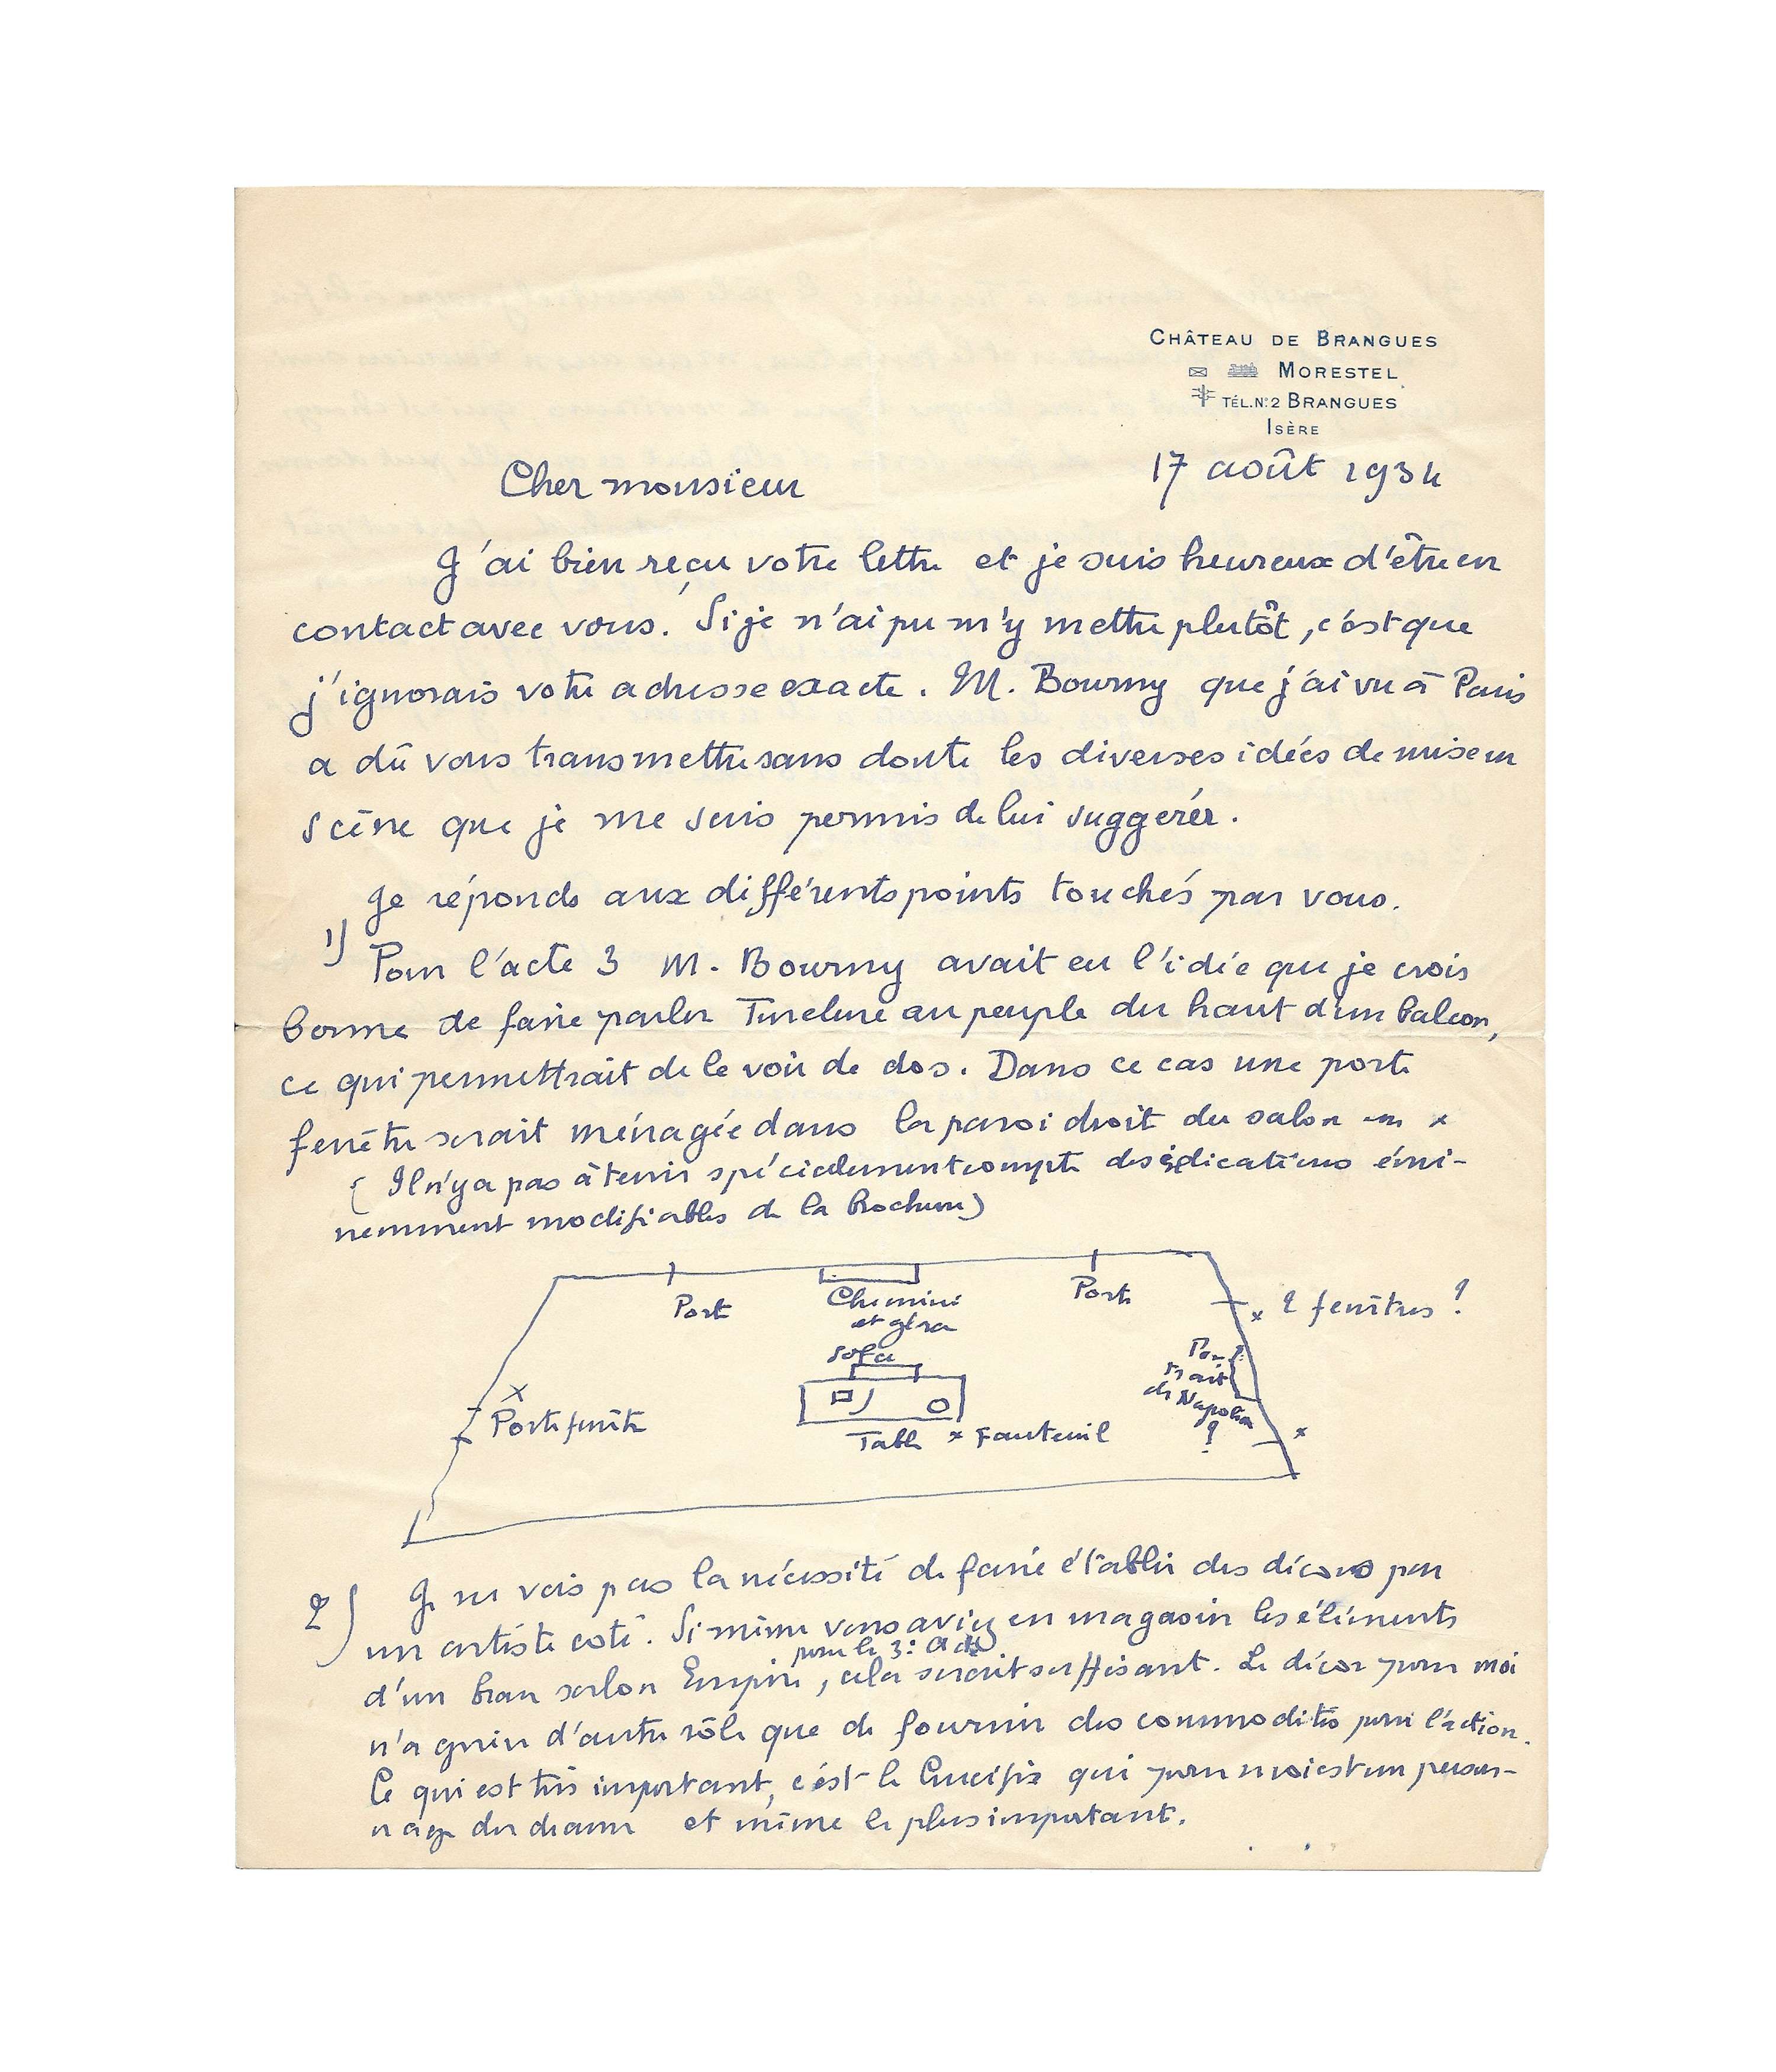 CHÂTEAU DE BRANGUES
MORESTEL
TÉL. N° 2 BRANGUES
ISÈRE
17 août 1934
Cher monsieur
J'ai bien reçu votre lettre et je suis heureux d'être en
contact avec vous. Si je n'ai pu m'y mettre plutôt, c'est que
j'ignorais votre adresse exacte. M. Bourny que j'ai vu à Paris
a dû vous transmettre sans doute les diverses idées de mise en
scène que je me suis permis de lui suggérer.
Je réponds aux différents points touchés par vous.
1) Pour l'acte 3 M. Bourny avait eu l'idée que je crois
bonne de faire parler Turelure au peuple du haut d'un balcon,
ce qui permettrait de le voir de dos. Dans ce cas une porte
fenêtre serait ménagée dans la paroi droit du salon en x
(Il n'y a pas à tenir spécialement compte des indications émi-
nemment modifiables de la brochure)
Porte
Cheminée
et glace
Porte
x 2 fenêtres ?
sofa
Por
trait
de Napoléon
?
x
Porte fenêtre
Table x Fauteuil
x
2) Je ne vois pas la nécessité de faire établir des décors par
un artiste coté. Si même vous aviez en magasin les éléments
pour le 3e acte
d'un beau salon Empire, cela serait suffisant. Le décor pour moi
n'a guère d'autre rôle que de fournir des commodités pour l'action.
Ce qui est très important, c'est le Crucifix qui pour moi est un person-
nage du drame et même le plus important.